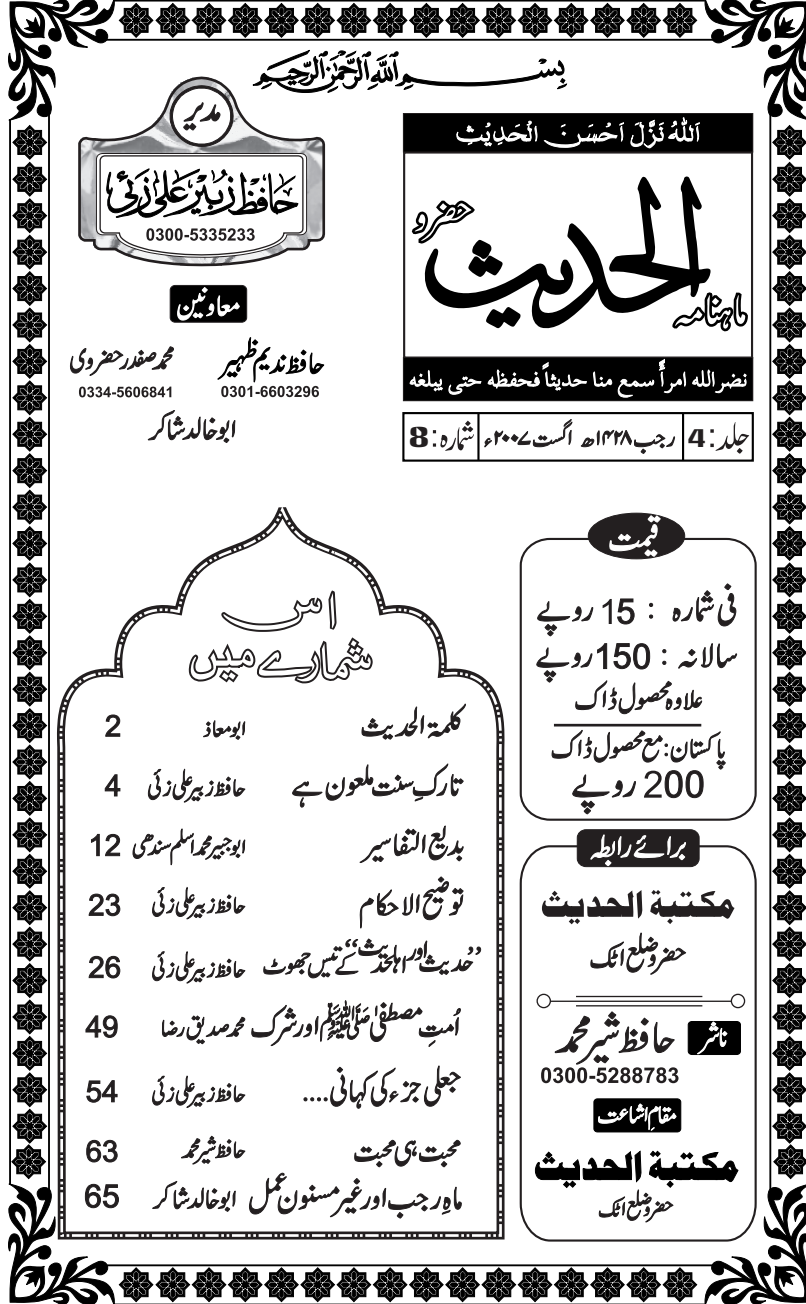 بِسْمِ اللّٰهِ الرَّحْمٰنِ الرَّحِيْمِ
اَللّٰهُ نَزَّلَ اَحْسَنَ الْحَدِيْثِ
ماہنامہ الحدیث حضرو
نضر الله امرأً سمع منا حديثاً فحفظه حتى يبلغه
جلد: 4 رجب ۱۴۲۸ھ اگست ۲۰۰۷ء شمارہ: 8
مدیر
حافظ زبیر علی زئی
0300-5335233
معاونین
حافظ ندیم ظہیر محمد صفدر حضروی
0301-6603296 0334-5606841
ابو خالد شاکر
قیمت
فی شمارہ : 15 روپے
سالانہ : 150 روپے
علاوہ محصول ڈاک
پاکستان: مع محصول ڈاک
200 روپے
برائے رابطہ
مكتبة الحديث
حضرو ضلع اٹک
ناشر حافظ شیر محمد
0300-5288783
مقام اشاعت
مكتبة الحديث
حضرو ضلع اٹک
اس
شمارے میں
کلمۃ الحدیث ابو معاذ 2
تارکِ سنت ملعون ہے حافظ زبیر علی زئی 4
بدیع التفاسیر ابو جبیر محمد اسلم سندھی 12
توضیح الاحکام حافظ زبیر علی زئی 23
”حدیث اور اہلحدیث“ کے تیس جھوٹ حافظ زبیر علی زئی 26
اُمتِ مصطفیٰ ﷺ اور شرک محمد صدیق رضا 49
جعلی جزء کی کہانی.... حافظ زبیر علی زئی 54
محبت ہی محبت حافظ شیر محمد 63
ماہِ رجب اور غیر مسنون عمل ابو خالد شاکر 65